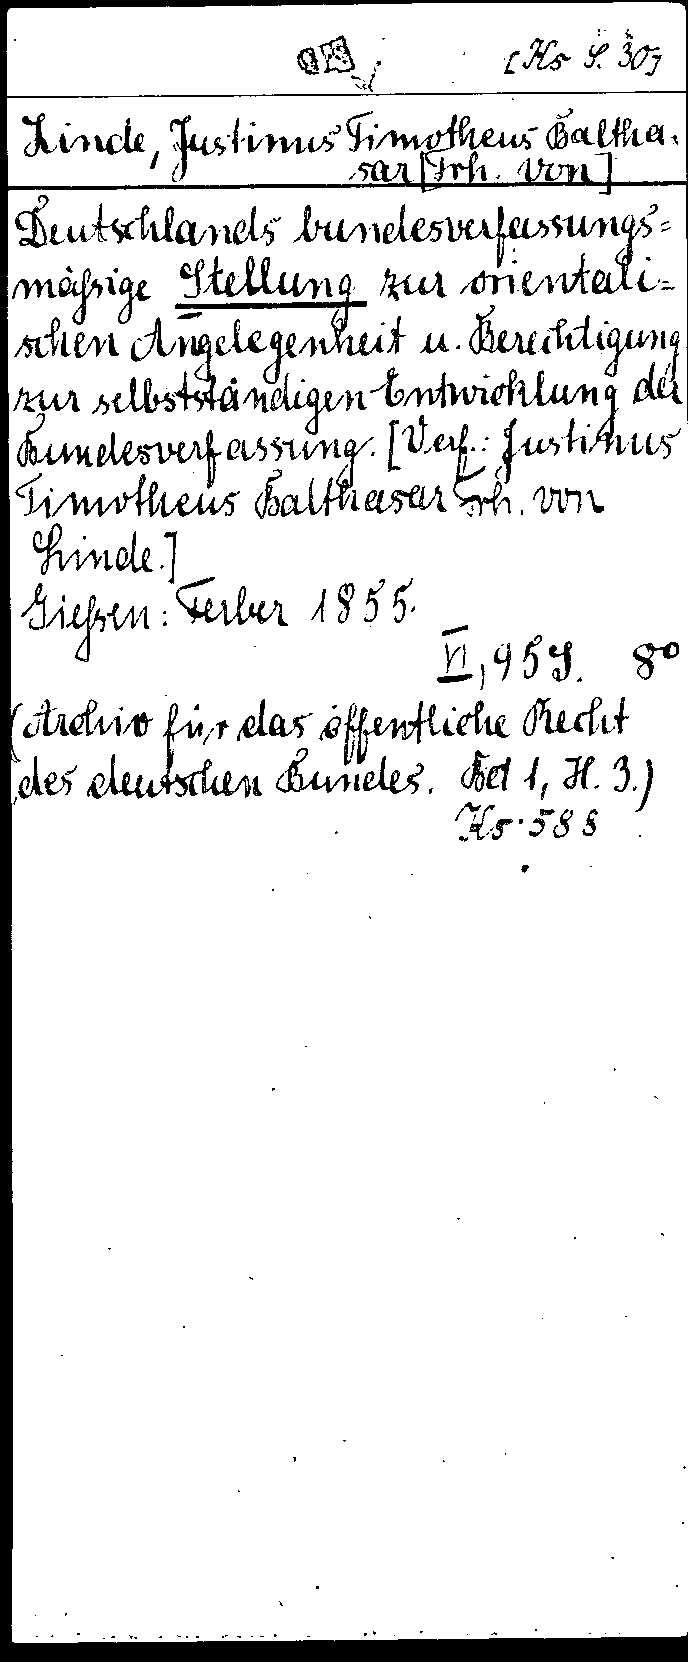 [Ks S. 30]
Linde, Justinus Timotheus Baltha-
sar [Frh. von]
Deutschlands bundesverfassungs=
mäßige Stellung zur orientali=
schen Angelegenheit u. Berechtigung
zur selbstständigen Entwicklung der
Bundesverfassung. [Verf.: Justinus
Timotheus Balthasar Frh. von
Linde.]
Gießen: Ferber 1855.
VI, 95 S. 8°
(Archiv für das öffentliche Recht
des deutschen Bundes. Bd 1, H. 3.)
Ks 588